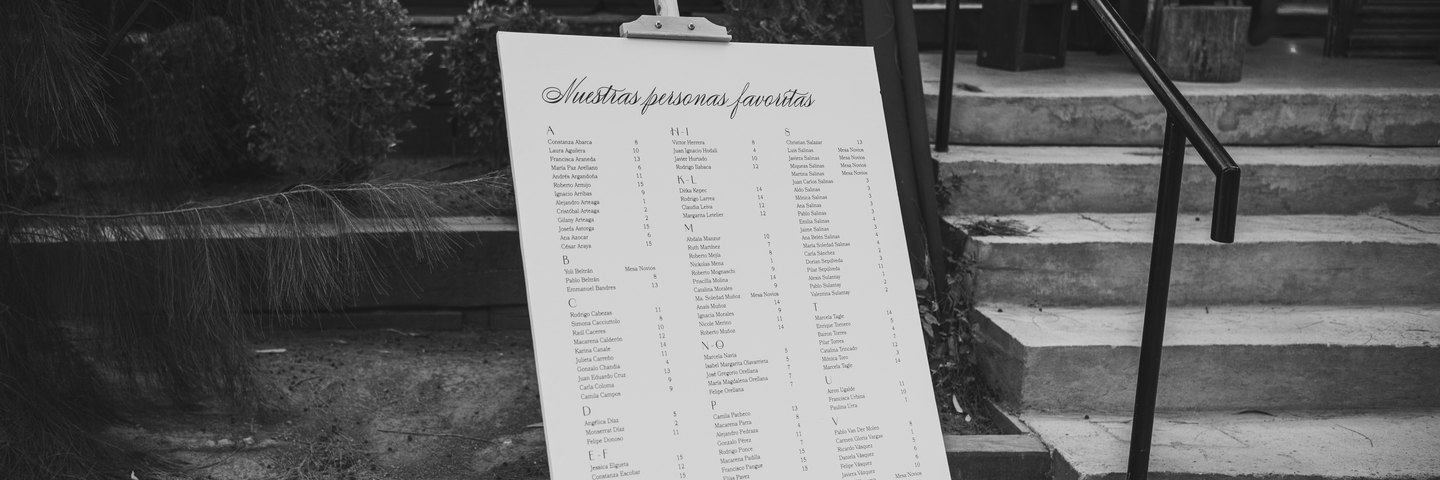 Nuestras personas favoritas
A
Constanza Abarca 8
Laura Aguilera 10
Francisca Araneda 13
María Paz Arellano 6
Andrés Argandoña 11
Roberto Armijo 15
Ignacio Arribas 9
Alejandro Arteaga 1
Cristóbal Arteaga 2
Gilany Arteaga 2
Josefa Astorga 15
Ana Azocar 6
César Araya 15
B
Yoli Beltrán Mesa Novios
Pablo Beltrán 8
Emmanuel Bandres 13
C
Rodrigo Cabezas 11
Simona Cacciuttolo 8
Raúl Caceres 10
Macarena Calderón 12
Karina Canale 14
Julieta Carreño 11
Gonzalo Chandia 4
Juan Eduardo Cruz 13
Carla Coloma 9
Camila Campos 9
D
Angélica Díaz 5
Monserrat Díaz 2
Felipe Donoso 11
E-F
Jessica Elgueta 15
Constanza Escobar 12
15
H-I
Víctor Herrera 8
Juan Ignacio Hodali 4
Javier Hurtado 10
Rodrigo Ilabaca 12
K-L
Ditka Kepec 14
Rodrigo Larrea 14
Claudia Leiva 12
Margarita Letelier 12
M
Abdala Manzur 10
Ruth Martínez 7
Roberto Mejía 8
Nickolas Mena 1
Roberto Mognaschi 9
Priscilla Molina 14
Catalina Morales 9
Ma. Soledad Muñoz Mesa Novios
Anaís Muñoz 14
Ignacia Morales 9
Nicole Merino 11
Roberto Muñoz 14
N-O
Marcela Navia 5
Isabel Margarita Olavarrieta 5
José Gregorio Orellana 7
María Magdalena Orellana 7
Felipe Orellana 7
P
Camila Pacheco 13
Macarena Parra 8
Alejandro Pedraza 4
Gonzalo Pérez 11
Rodrigo Ponce 7
Macarena Padilla 15
Francisco Pangue 15
Elías Pavez
S
Christian Salazar 13
Luis Salinas Mesa Novios
Javiera Salinas Mesa Novios
Miqueas Salinas Mesa Novios
Martina Salinas Mesa Novios
Juan Carlos Salinas 3
Aldo Salinas 3
Mónica Salinas 3
Ana Salinas 3
Pablo Salinas 3
Emilia Salinas 4
Jaime Salinas 3
Ana Belén Salinas 4
María Soledad Salinas 4
Carla Sánchez 2
Dorian Sepúlveda 3
Pilar Sepúlveda 11
Alexis Sulantay 1
Pablo Sulantay 2
Valentina Sulantay 2
T
Marcela Tagle 14
Enrique Tornero 5
Bairon Torres 4
Pilar Torres 7
Catalina Trincado 12
Mónica Toro 3
Marcela Tagle 14
U
Airon Ugalde 11
Francisca Urbina 10
Paulina Urra 1
V
Pablo Van Der Molen 8
Carmen Gloria Vargas 1
Ricardo Vásquez 5
Daniela Vásquez 6
Felipe Vásquez 6
Javiera Vásquez 10
Mesa Novios